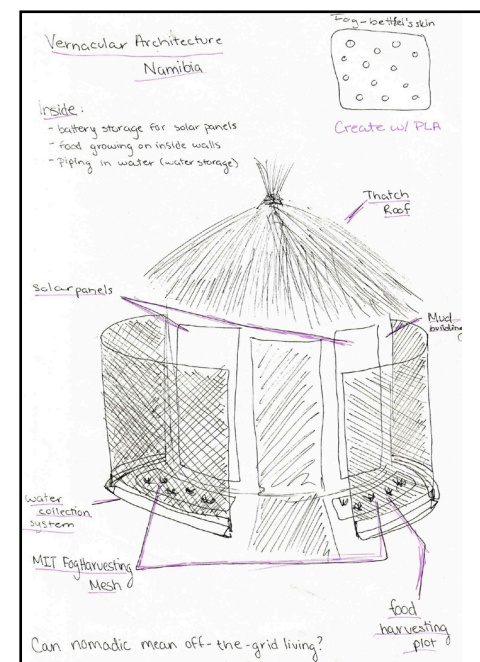 Vernacular Architecture
Namibia
Fog-beetle's skin
Create w/ PLA
Inside:
- battery storage for solar panels
- food growing on inside walls
- piping in water (water storage)
Thatch
Roof
Solar panels
Mud
building
water
collection
system
MIT Fog Harvesting
Mesh
food
harvesting
plot
Can nomadic mean off-the-grid living?